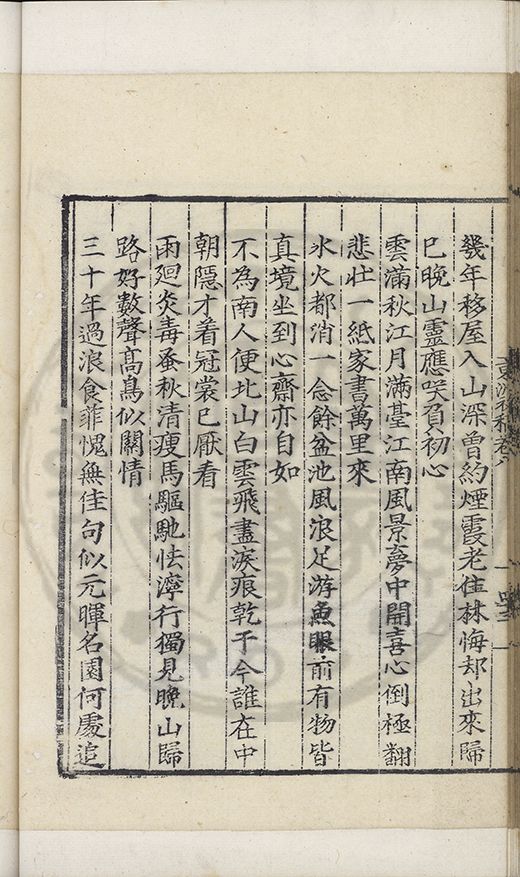 幾年移屋入山深曾約煙霞老佳林悔却出來歸
已晚山靈應咲負初心
雲滿秋江月滿臺江南風景夢中開喜心倒極翻
悲壯一紙家書萬里來
氷火都消一念餘盆池風浪足游魚眼前有物皆
真境坐到心齋亦自如
不為南人便北山白雲飛盡淚痕乾于今誰在中
朝隱才着冠裳已厭看
雨廻炎毒蚤秋清瘦馬驅馳怯濘行獨見晚山歸
路好數聲高鳥似關情
三十年過浪食菲愧無佳句似元暉名園何處追